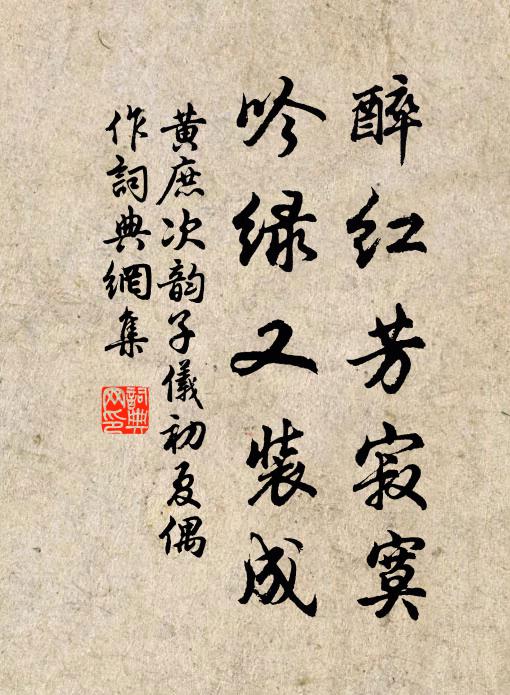 醉红芳寂寞
吟绿又装成
黄庶次韵子儀初夏偶
作詞典網集
詞典
网印